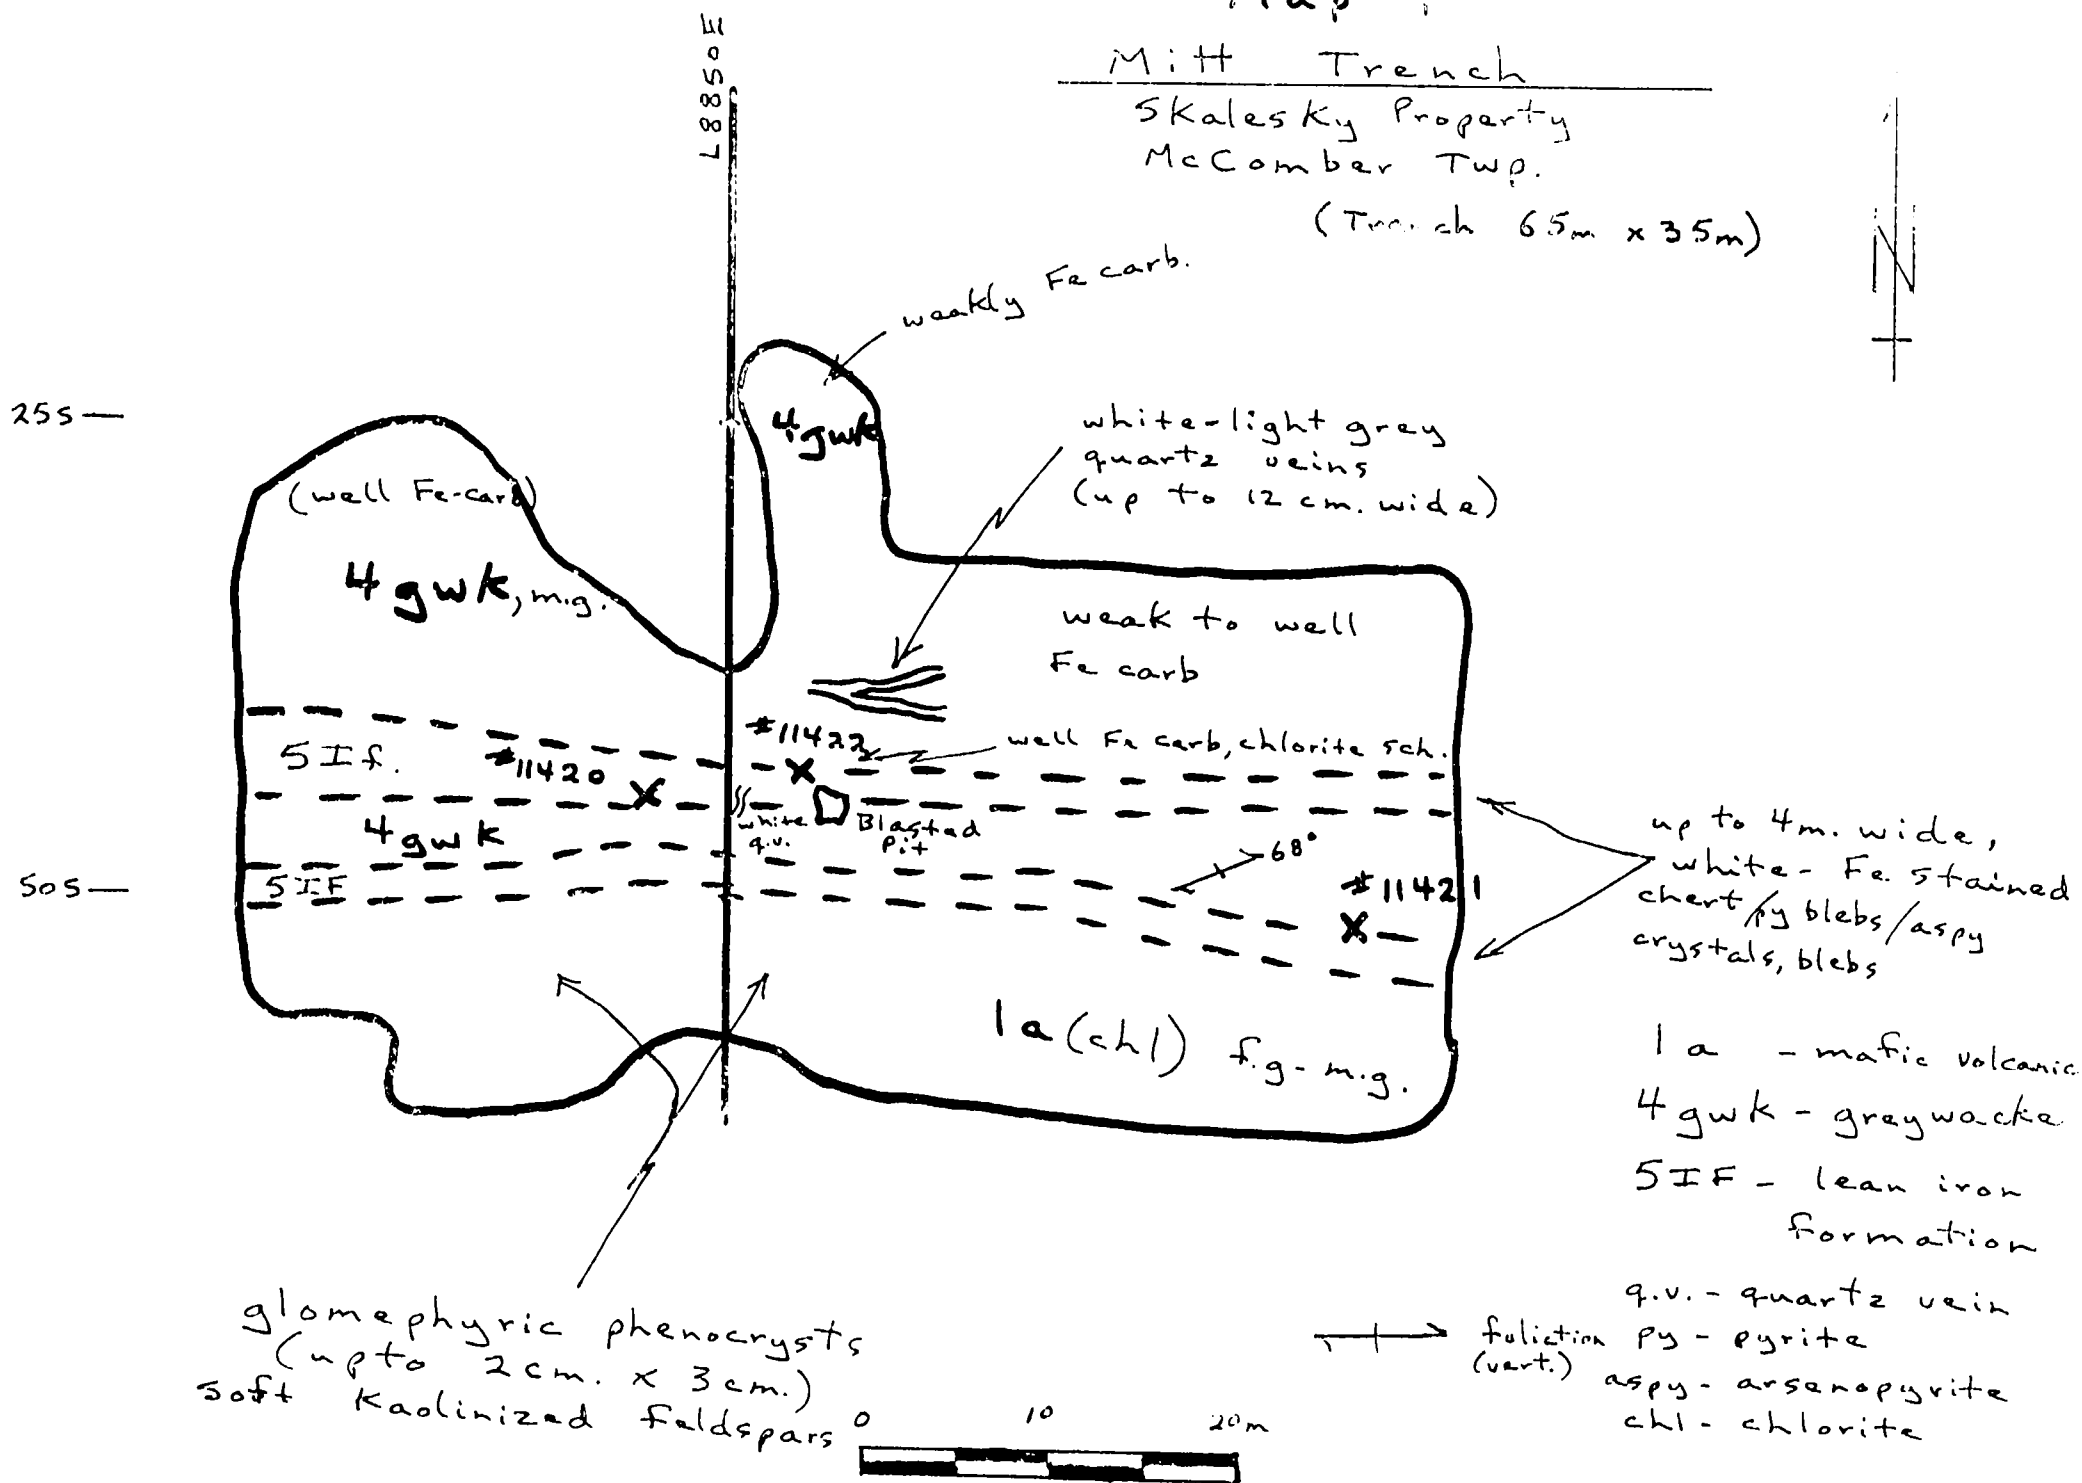 Map
Mitt Trench
Skalesky Property
McComber Twp.
(Trench 65m x 35m)
L8850E
N
weakly Fe carb.
25S
4gwk
white-light grey
quartz veins
(up to 12 cm. wide)
(well Fe-carb)
4 gwk, m.g.
weak to well
Fe carb
#11422
well Fe carb, chlorite sch.
5 If.
#11420
4 gwk
white
q.v.
Blasted
Pit
68°
up to 4m. wide,
white- Fe. stained
chert/py blebs/aspy
crystals, blebs
50S
5IF
#11421
1a (chl) f.g - m.g.
1 a - mafic volcanic
4 gwk - greywacke
5IF - lean iron
formation
q.v. - quartz vein
foliction
(vert.)
py - pyrite
aspy - arsenopyrite
chl - chlorite
glomephyric phenocrysts
(upto 2cm. x 3cm.)
soft Kaolinized feldspars
0 10 20m